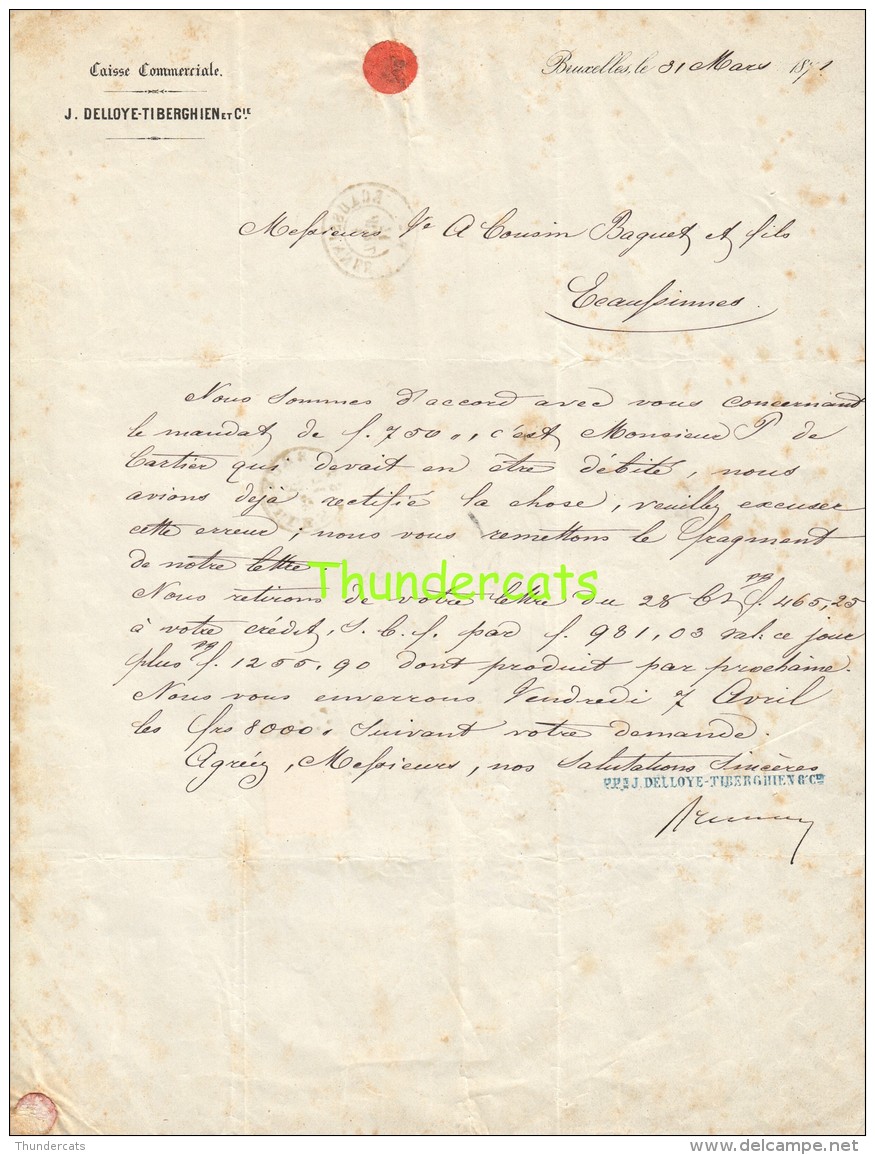 Caisse Commerciale.
J. DELLOYE-TIBERGHIEN ET Cie.
Bruxelles, le 31 Mars 1871
Messieurs Ve A Cousin Baguet et fils
Ecaussinnes.
Nous sommes d'accord avec vous concernant
le mandat de f. 750 ,, c'est Monsieur P de
Cartier qui devait en être débité, nous
avions déjà rectifié la chose, veuillez excuser
cette erreur; nous vous remettons le fragment
de notre lettre.
Thundercats
Nous retirons de votre lettre du 28 Ct pg f. 465,25
à votre crédit, S. b. f. par f. 931,03 val: ce jour
plus pg f. 1255,90 dont produit par prochaine.
Nous vous enverrons Vendredi 7 Avril
les frs 8000 ,, suivant votre demande.
Agréez, Messieurs, nos Salutations Sincères
PPn J. DELLOYE-TIBERGHIEN & Cie
Thundercats
delcampe.net